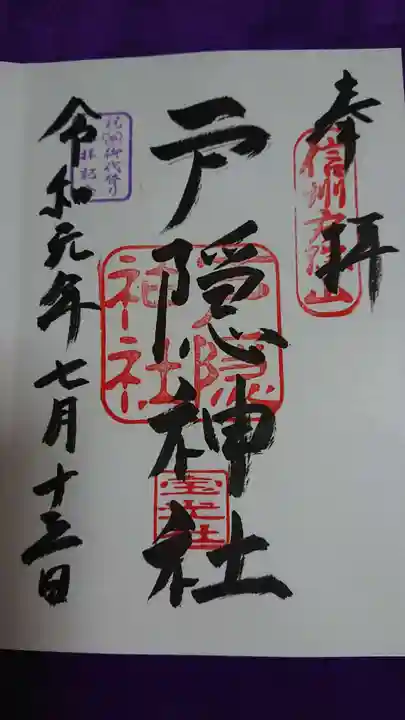 奉拝
信州戸隠山
戸隠神社
戸隠
神社
宝光社
令和元年七月十三日
祝御代替り